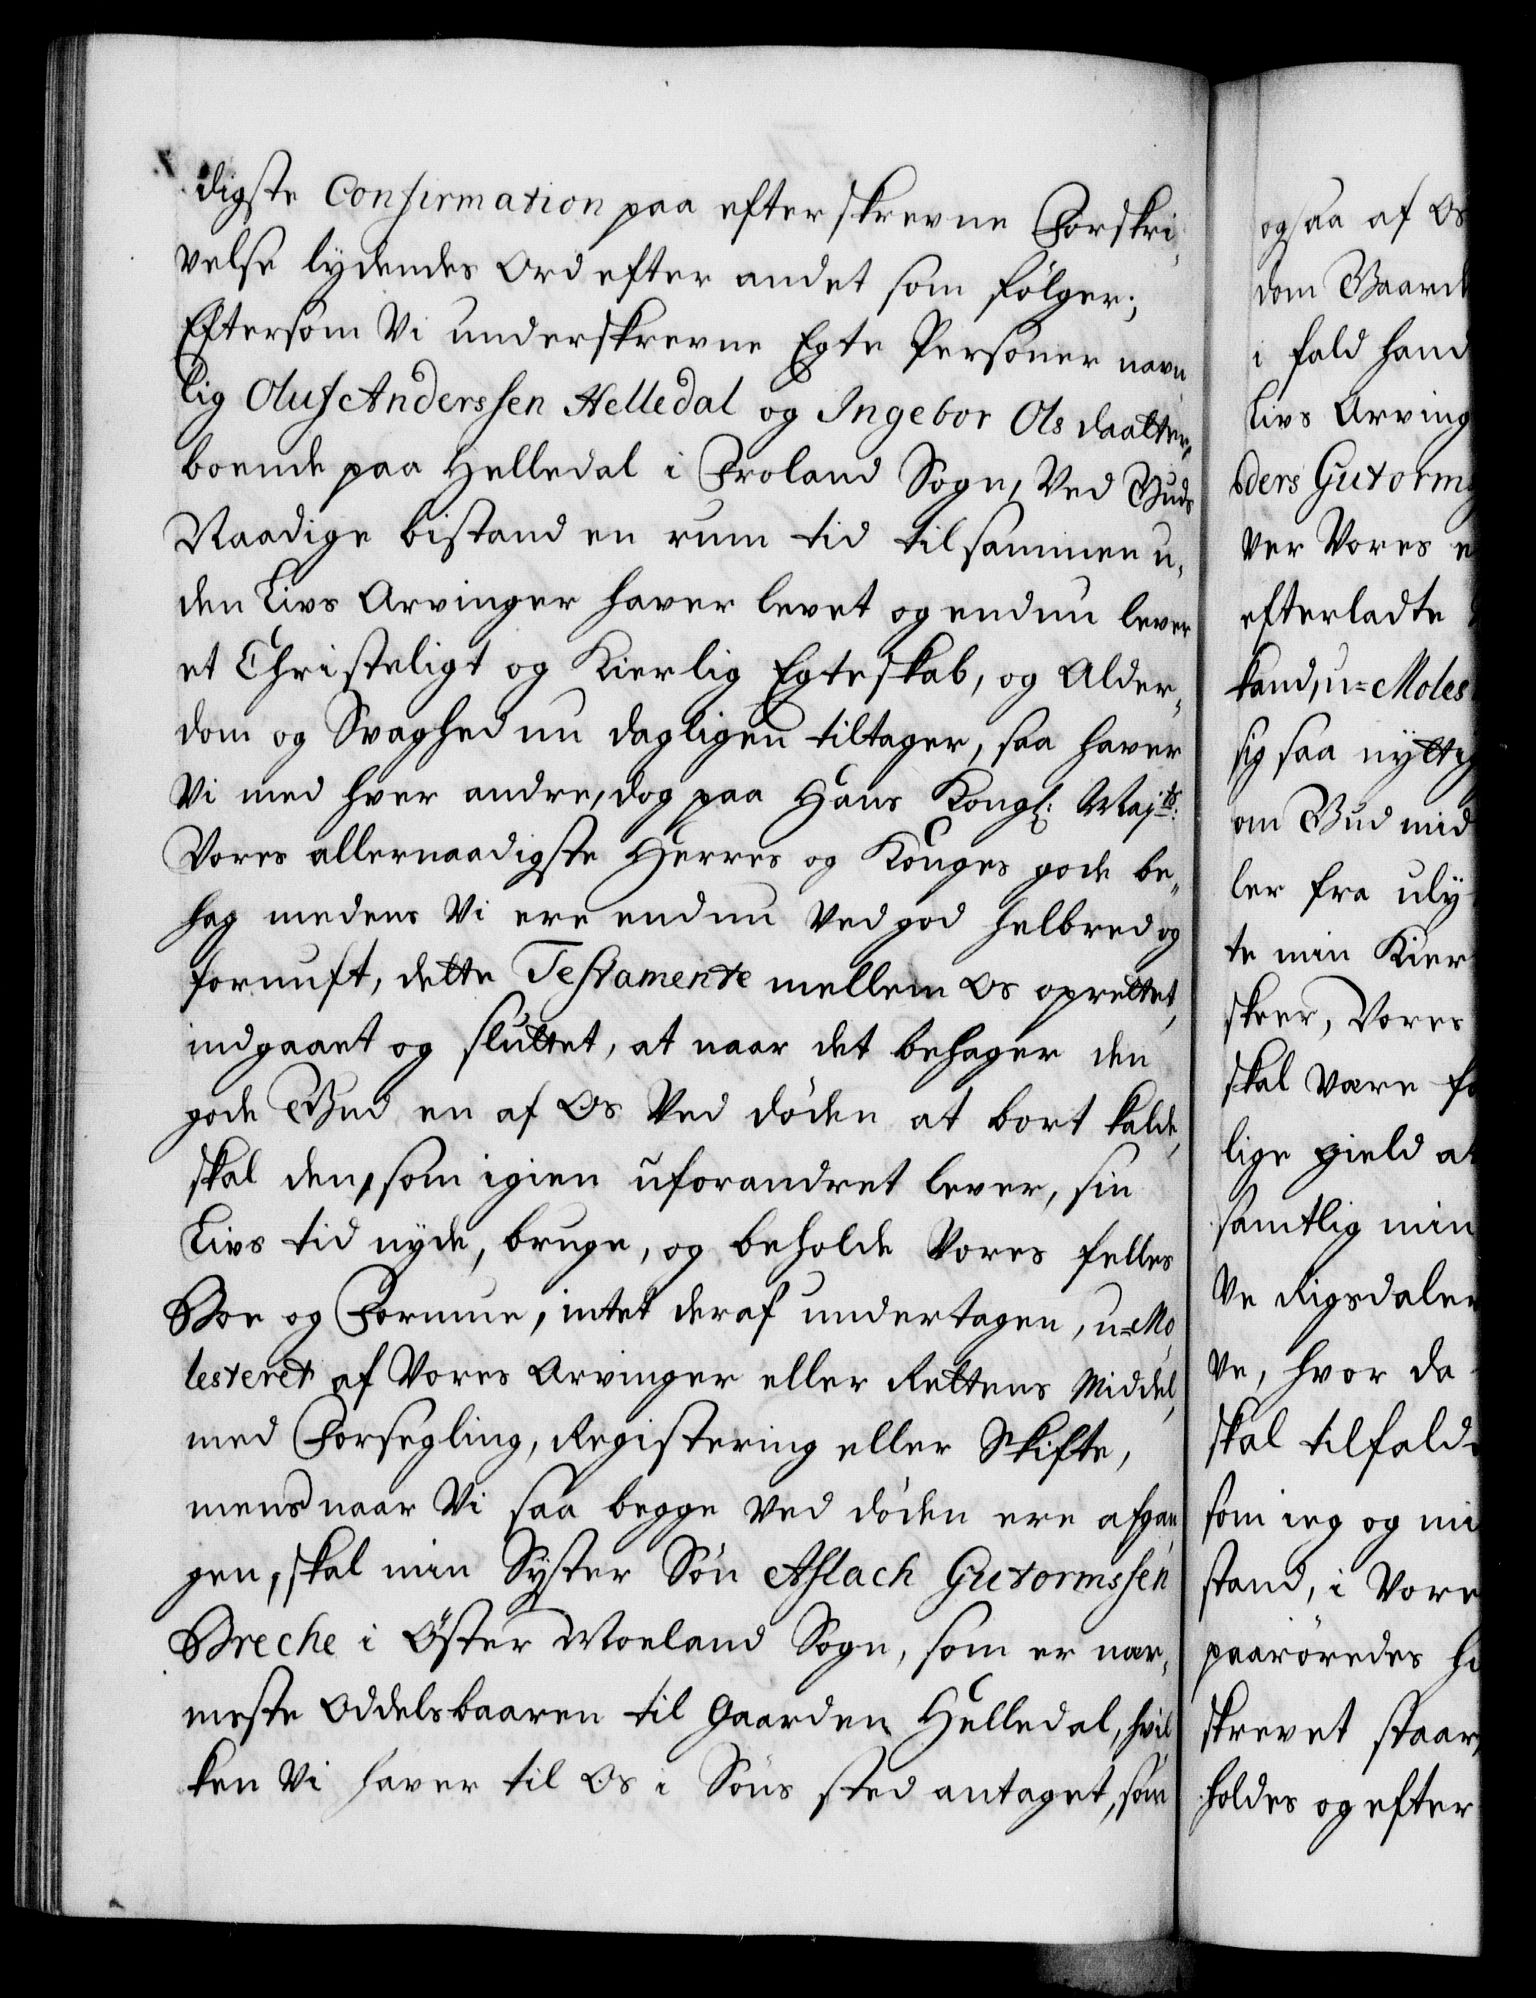 digste Confirmation paa efterskrevne Forskri-
velse lydendes Ord efter andet som følger;
Eftersom Vi underskrevne Egte Personer navn
lig Oluf Anderssen Helledal og Ingebor Ols daatter,
boende paa Helledal i Froland Sogn, Ved Guds
Naadige bistand en rum tid tilsammen u-
den Livs Arvinger haver levet og endnu lever
et Christeligt og Kierlig Egteskab, og Alder-
dom og Svaghed nu dagligen tiltager, saa haver
Vi med hver andre, dog paa Hans Kongl: Majts:
Vores allernaadigste Herres og Konges gode be-
hag medens Vi ere endnu Ved god helbred og
fornuft, dette Testamente mellem Os oprettet,
indgaaet og sluttet, at naar det behager den
gode Gud en af Os Ved døden at bort kalde,
skal den, som igien uforandret lever, sin
Livs tid nyde, bruge, og beholde Vores felles
Boe og Formue, intet deraf undertagen, u-Mo
lesteret af Vores Arvinger eller Rettens Middel,
med Forsegling, Registering eller Skifte,
mens naar Vi saa begge Ved døden ere afgan
gen, skal min Syster Søn Aslach Gutormssen
Breche i Øster Moeland Sogn, som er nær-
meste Oddelsbaaren til Gaarden Helledal, hvil
ken Vi haver til Os i Søns sted antaget, som
ogsaa af Os
dom Gaard
i fald hand
Livs Arving
ders Gutorms
ver Vores e
efterladte
kand, u-Moles
sig saa nytt
om Gud mid
ler fra uly
te min Kier
skeer, Vores
skal være fo
lige gield at
samtlig min
ve Rigsdaler
ve, hvor da
skal tilfald
som ieg og mi
stand, i Vore
paarøredes h
skrevet staar,
holdes og efter